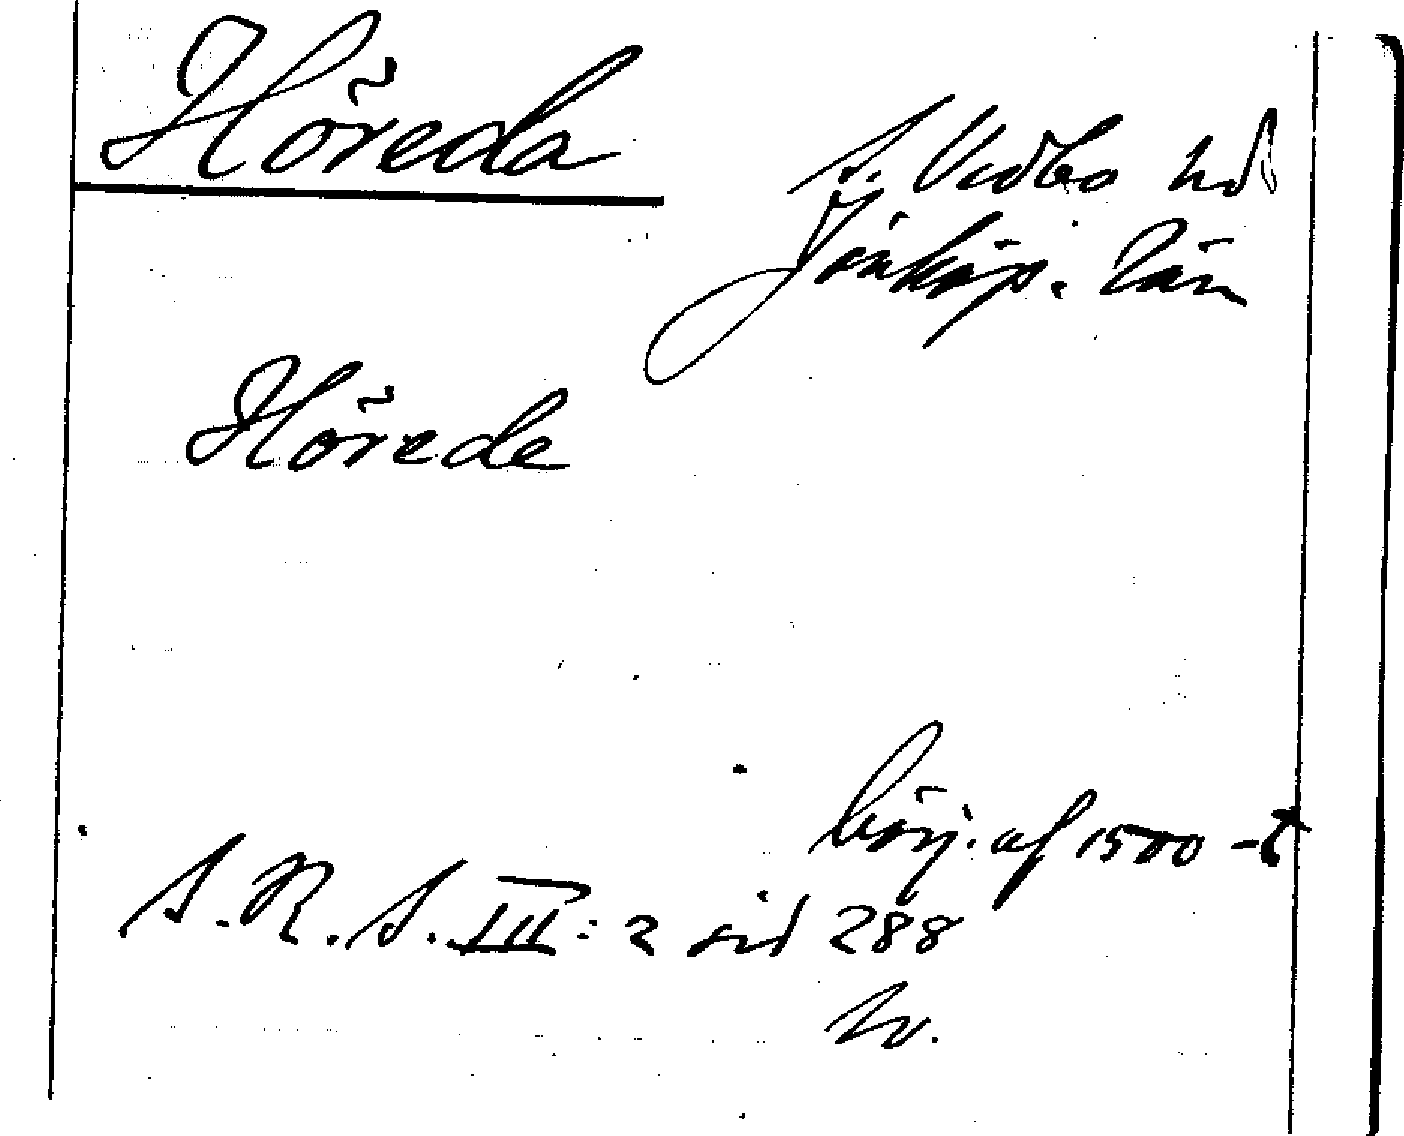 Höreda
S. Vedbo hd
Jönköp. län
Hörede
börj. af 1500-t
S.R.S. III:2 sid 288